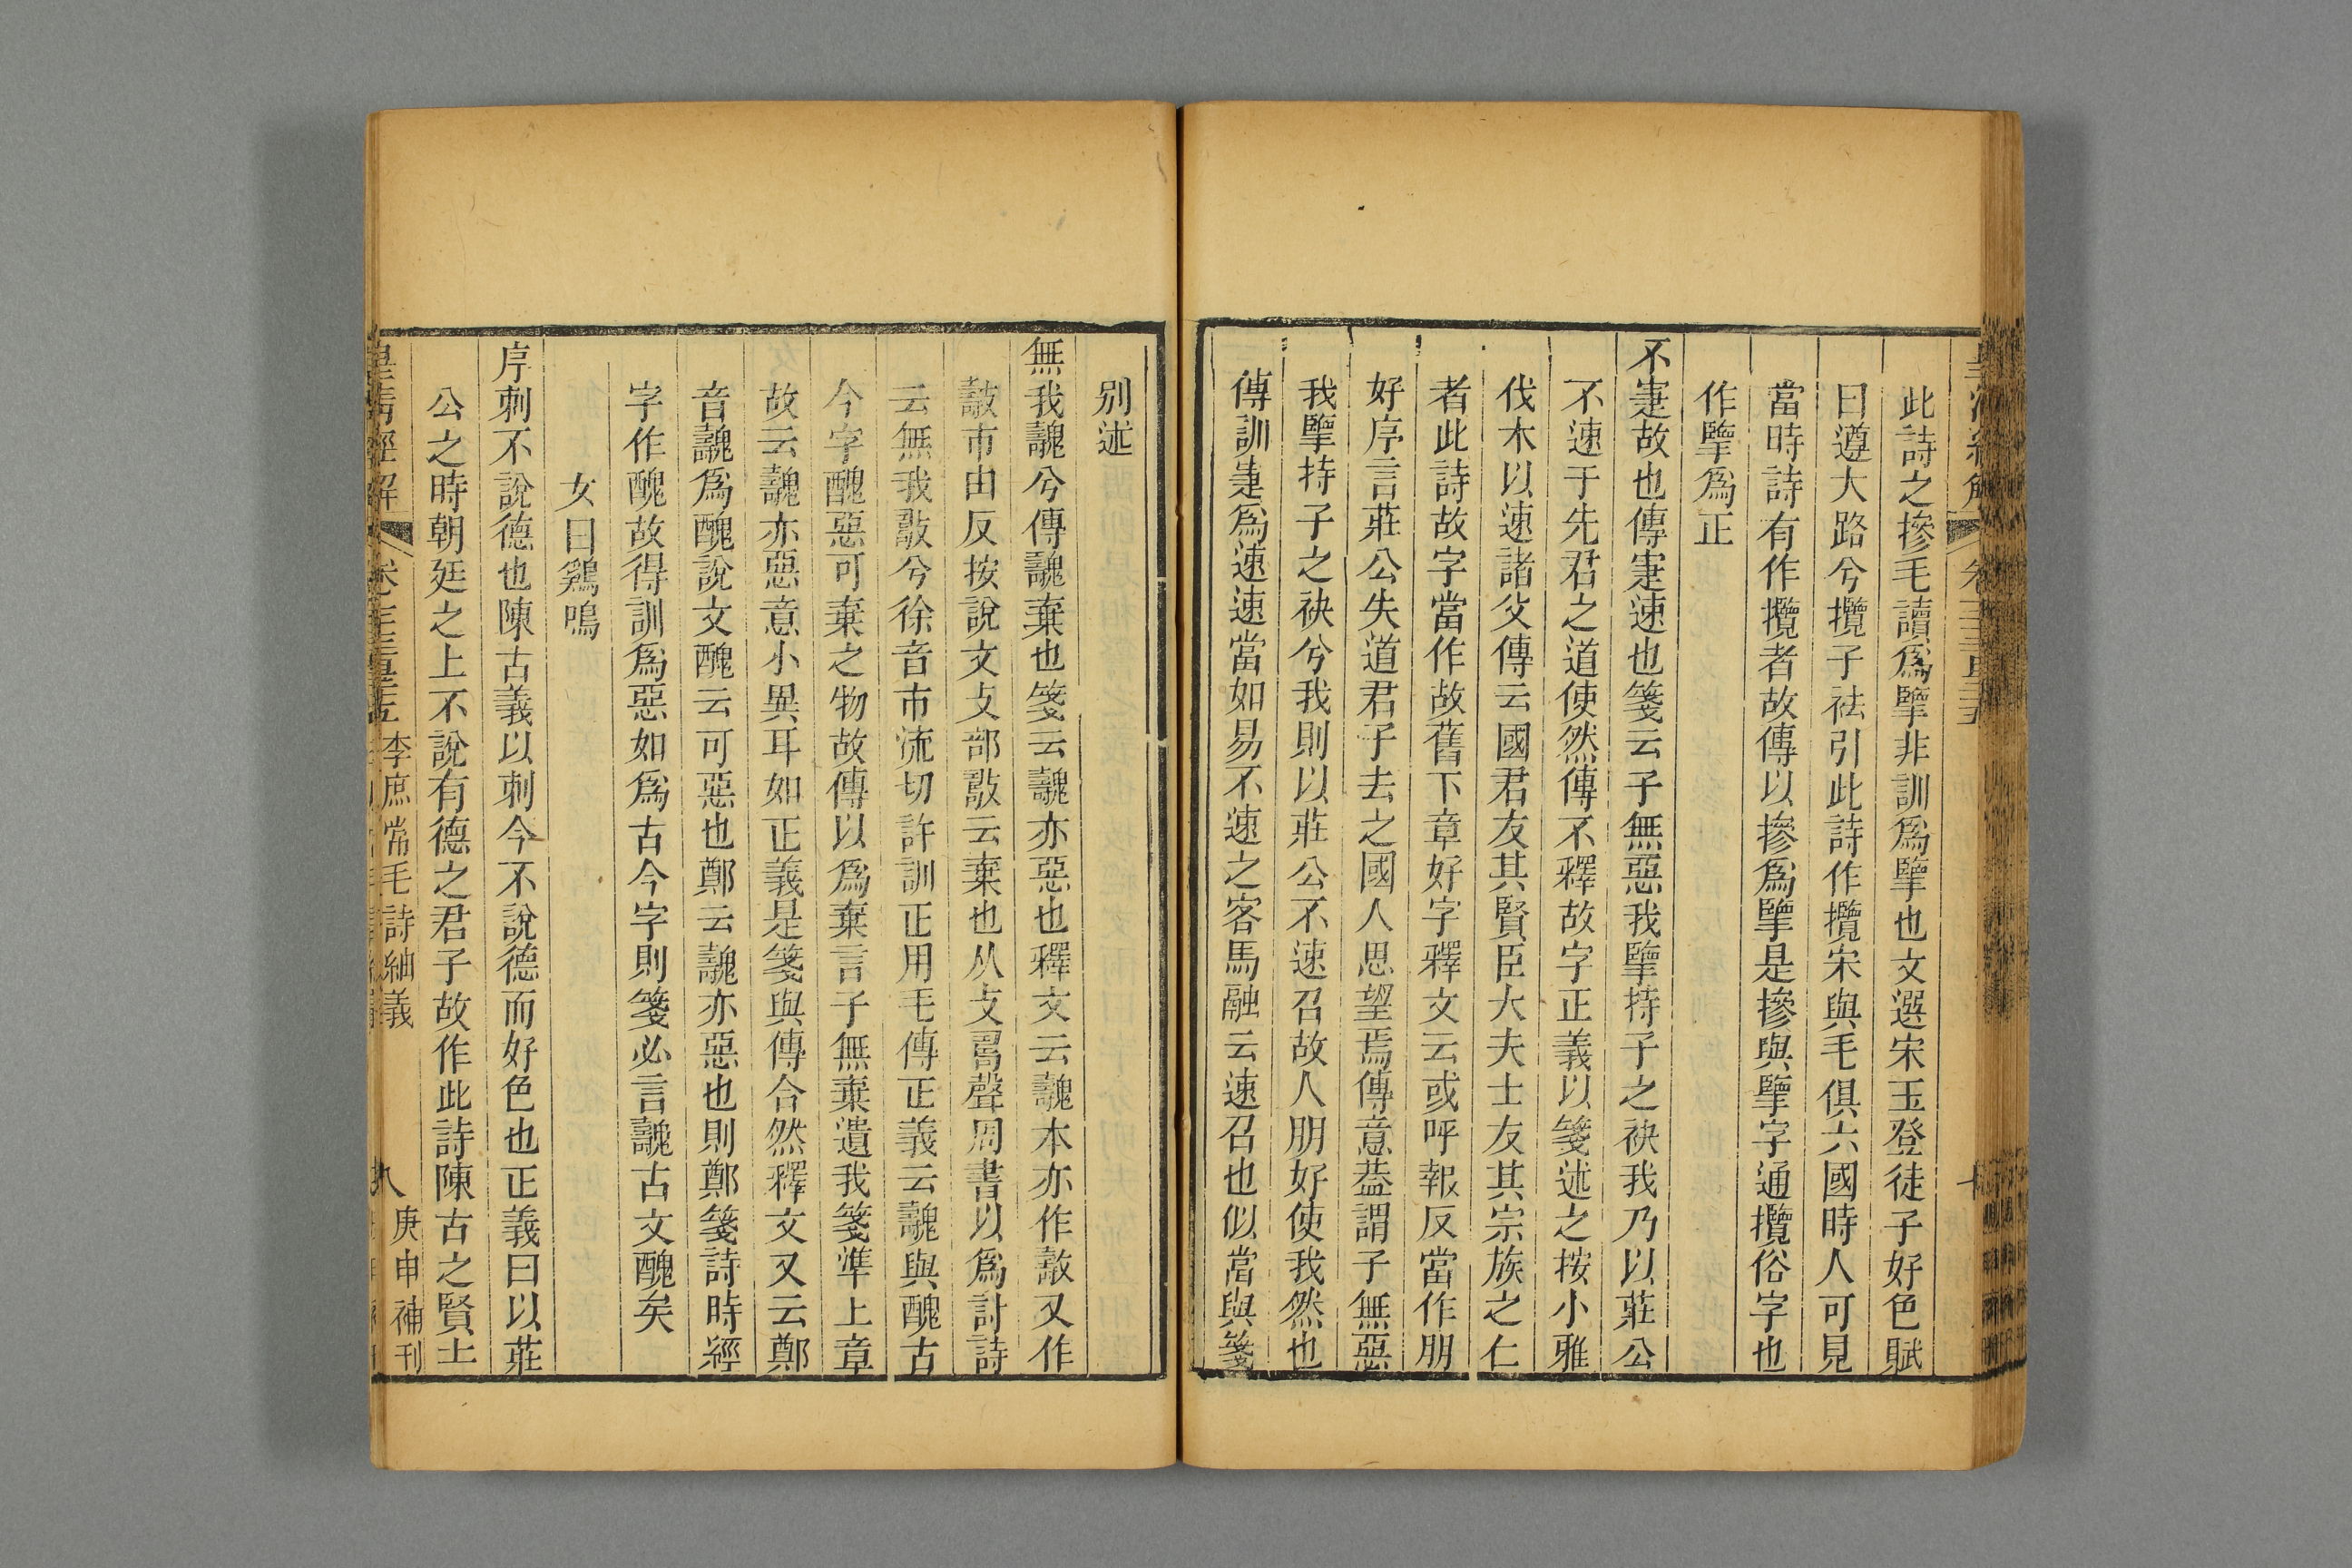 此詩之摻毛讀爲擥非訓爲擥也文選宋玉登徒子好色賦
曰遵大路兮攬子祛引此詩作攬宋與毛俱六國時人可見
當時詩有作攬者故傳以摻爲擥是摻與擥字通攬俗字也
作擥爲正
不寁故也傳寁速也箋云子無惡我擥持子之袂我乃以莊公
不速于先君之道使然傳不釋故字正義以箋述之按小雅
伐木以速諸父傳云國君友其賢臣大夫士友其宗族之仁
者此詩故字當作故舊下章好字釋文云或呼報反當作朋
好序言莊公失道君子去之國人思望焉傳意葢謂子無惡
我擥持子之袂兮我則以莊公不速召故人朋好使我然也
傳訓寁爲速速當如易不速之客馬融云速召也似當與箋
别述
無我魗兮傳魗棄也箋云魗亦惡也釋文云魗本亦作𣀳又作
𣀘市由反按說文攴部𢿭云棄也从攴𠷎聲周書以爲討詩
云無我𢿭兮徐音市流切許訓正用毛傳正義云魗與醜古
今字醜惡可棄之物故傳以爲棄言子無棄遺我箋準上章
故云魗亦惡意小異耳如正義是箋與傳合然釋文又云鄭
音魗爲醜說文醜云可惡也鄭云魗亦惡也則鄭箋詩時經
字作醜故得訓爲惡如爲古今字則箋必言魗古文醜矣
女曰鷄鳴
序刺不說德也陳古義以刺今不說德而好色也正義曰以莊
公之時朝廷之上不說有德之君子故作此詩陳古之賢士
皇清經解
李庶常毛詩紬義
八
庚申補刊